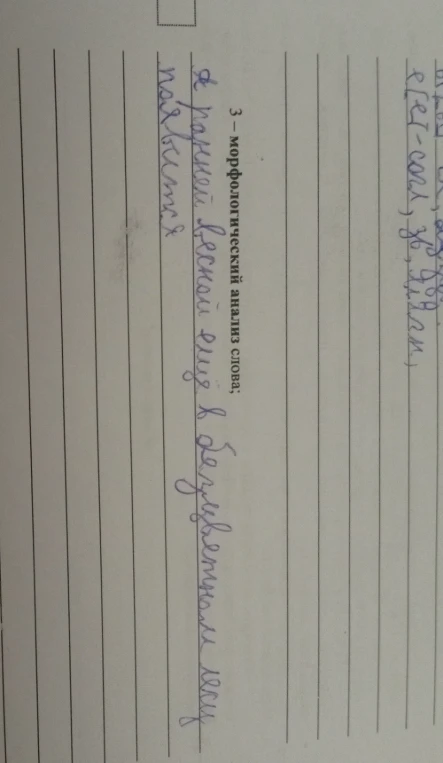 е[ет-согл, зв,
3 – морфологический анализ слова;
ранней весной ещё в безцветном лесу
появится